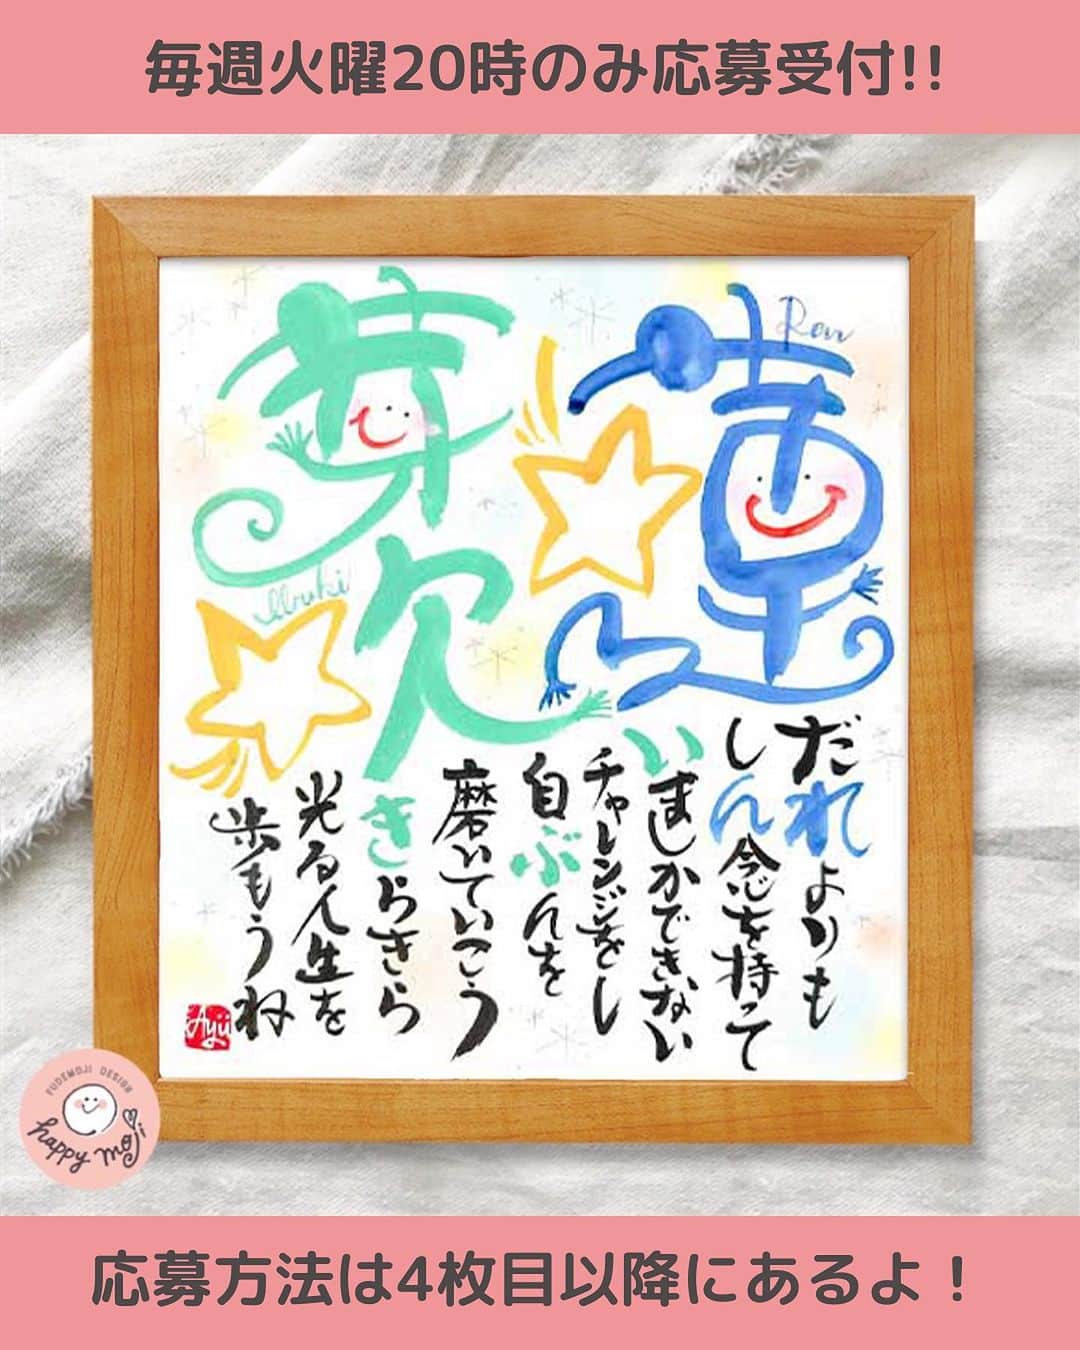 毎週火曜20時のみ応募受付!!
蓮
Ren
芽吹
Ibuki
だれよりも
しん念を持って
いましかできない
チャレンジをし
自ぶんを
磨いていこう
きらきら
光る人生を
歩もうね
Ayu
FUDEMOJI DESIGN
happy moji
応募方法は4枚目以降にあるよ！